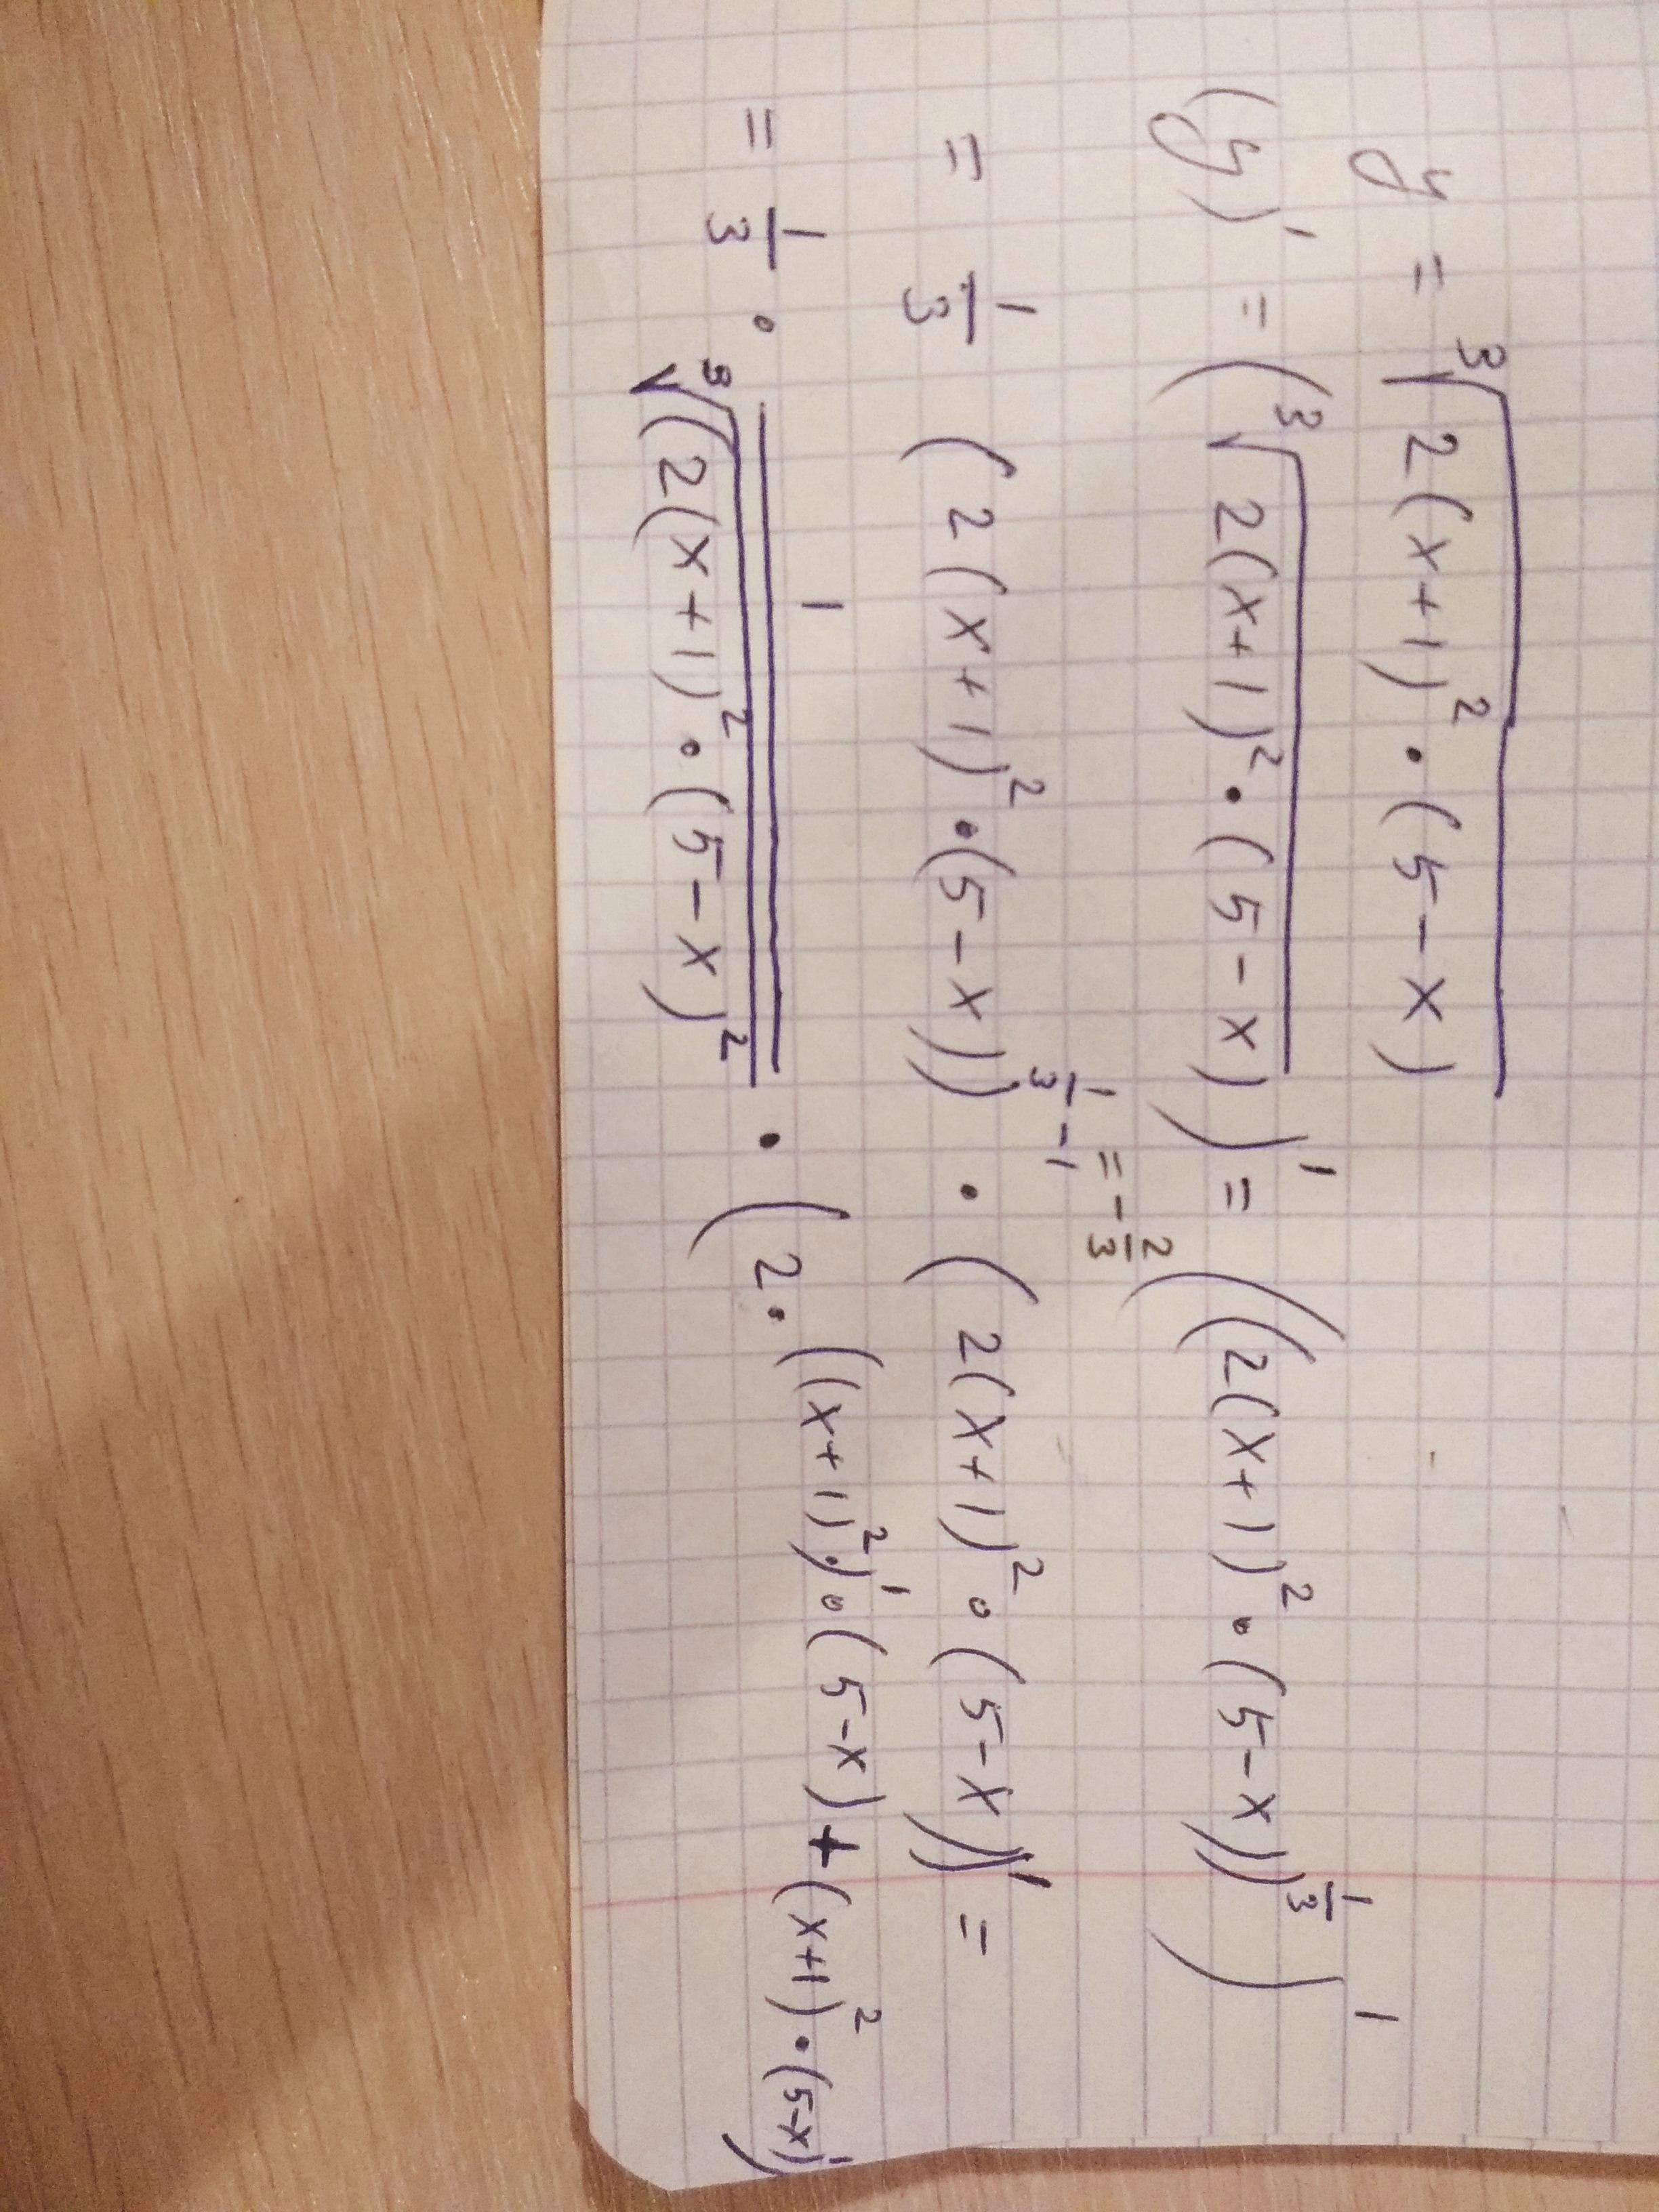 y = ∛(2(x+1)² · (5-x))
(y)' = (∛(2(x+1)² · (5-x)))' = ((2(x+1)² · (5-x))^(1/3))'
= 1/3 (2(x+1)² · (5-x))^(1/3 -1 = -2/3) · (2(x+1)² · (5-x))' =
= 1/3 · 1/∛((2(x+1)² · (5-x)²) · (2 · ((x+1)²)' · (5-x) + (x+1)² · (5-x)')